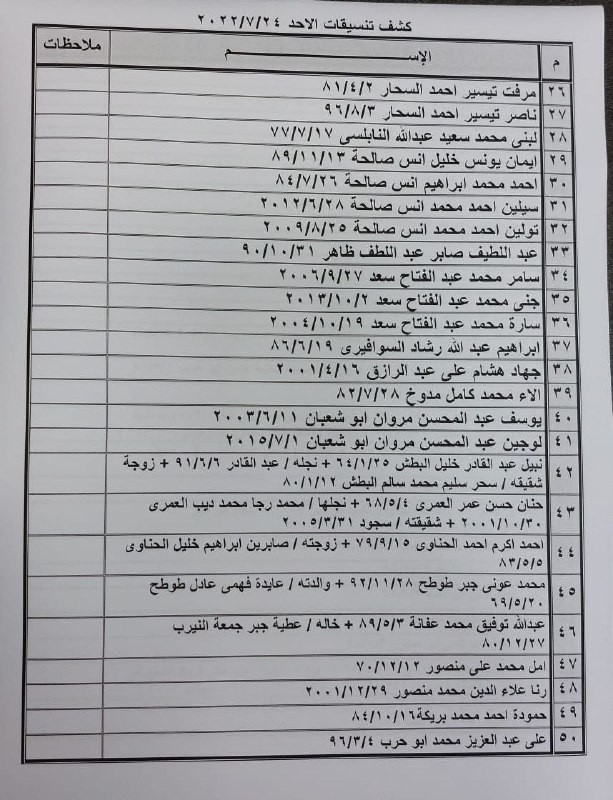 كشف تنسيقات الاحد ٢٠٢٢/٧/٢٤
م الإســــم ملاحظات
٢٦ مرفت تيسير احمد السحار ٨١/٤/٢
٢٧ ناصر تيسير احمد السحار ٩٦/٨/٣
٢٨ لبنى محمد سعيد عبدالله النابلسى ٧٧/٧/١٧
٢٩ ايمان يونس خليل انس صالحة ٨٩/١١/١٣
٣٠ احمد محمد ابراهيم انس صالحة ٨٤/٧/٢٦
٣١ سيلين احمد محمد انس صالحة ٢٠١٢/٦/٢٨
٣٢ تولين احمد محمد انس صالحة ٢٠٠٩/٨/٢٥
٣٣ عبد اللطيف صابر عبد اللطف ظاهر ٩٠/١٠/٣١
٣٤ سامر محمد عبد الفتاح سعد ٢٠٠٦/٩/٢٧
٣٥ جنى محمد عبد الفتاح سعد ٢٠١٣/١٠/٢
٣٦ سارة محمد عبد الفتاح سعد ٢٠٠٤/١٠/١٩
٣٧ ابراهيم عبد الله رشاد السوافيرى ٨٦/٦/١٩
٣٨ جهاد هشام على عبد الرازق ٢٠٠١/٤/١٦
٣٩ الاء محمد كامل مدوخ ٨٢/٧/٢٨
٤٠ يوسف عبد المحسن مروان ابو شعبان ٢٠٠٣/٦/١١
٤١ لوجين عبد المحسن مروان ابو شعبان ٢٠١٥/٧/١
٤٢ نبيل عبد القادر خليل البطش ٦٤/١/٢٥ + نجله / عبد القادر ٩١/٦/٦ + زوجة
شقيقه / سحر سليم محمد سالم البطش ٨٠/١/١٢
٤٣ حنان حسن عمر العمرى ٦٨/٥/٤ + نجلها / محمد رجا محمد ديب العمرى
٢٠٠١/١٠/٣٠ + شقيقته / سجود ٢٠٠٥/٣/٣١
٤٤ احمد اكرم احمد الحناوى ٧٩/٩/١٥ + زوجته / صابرين ابراهيم خليل الحناوى
٨٣/٥/٥
٤٥ محمد عونى جبر طوطح ٩٢/١١/٢٨ + والدته / عايدة فهمى عادل طوطح
٦٩/٥/٢٠
٤٦ عبدالله توفيق محمد عفانة ٨٩/٥/٣ + خاله / عطية جبر جمعة النيرب
٨٠/١٢/٢٧
٤٧ امل محمد على منصور ٧٠/١٢/١٢
٤٨ رنا علاء الدين محمد منصور ٢٠٠١/١٢/٢٩
٤٩ حمودة احمد محمد بريكة ٨٤/١٠/١٦
٥٠ على عبد العزيز محمد ابو حرب ٩٦/٣/٤